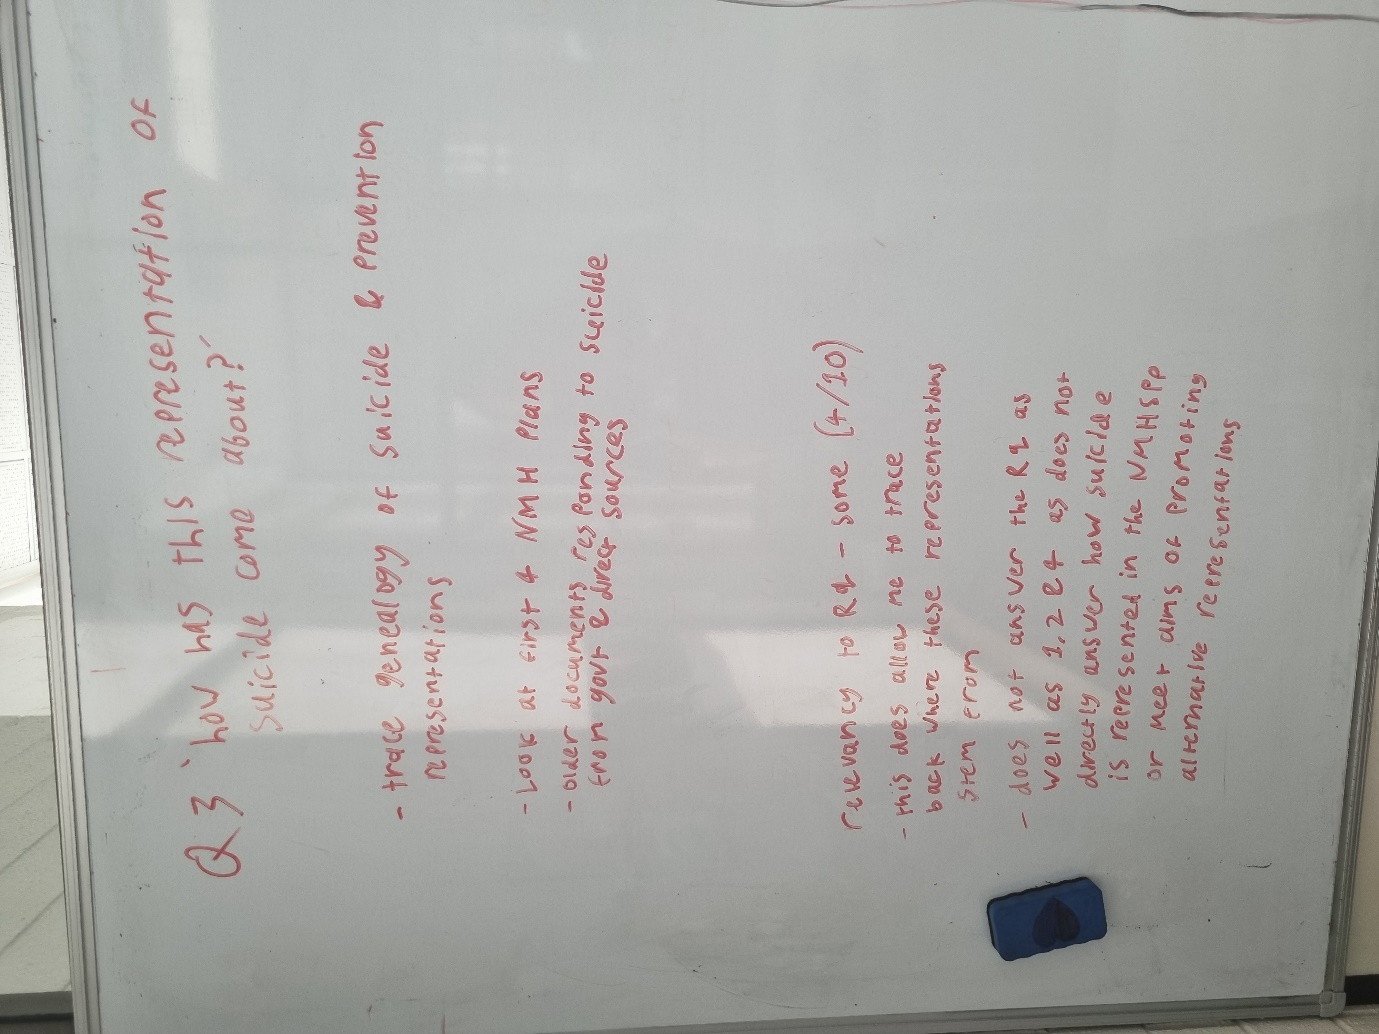 Q3 'how has this representation of
suicide come about?'
- trace genealogy of suicide & prevention
representations
- Look at first 4 NMH Plans
- older documents responding to suicide
from govt & direct sources
relevancy to RQ - some (4/10)
- this does allow me to trace
back where these representations
stem from
- does not answer the RQ as
well as 1, 2 & 4 as does not
directly answer how suicide
is represented in the NMHSPP
or meet aims of promoting
alternative representations